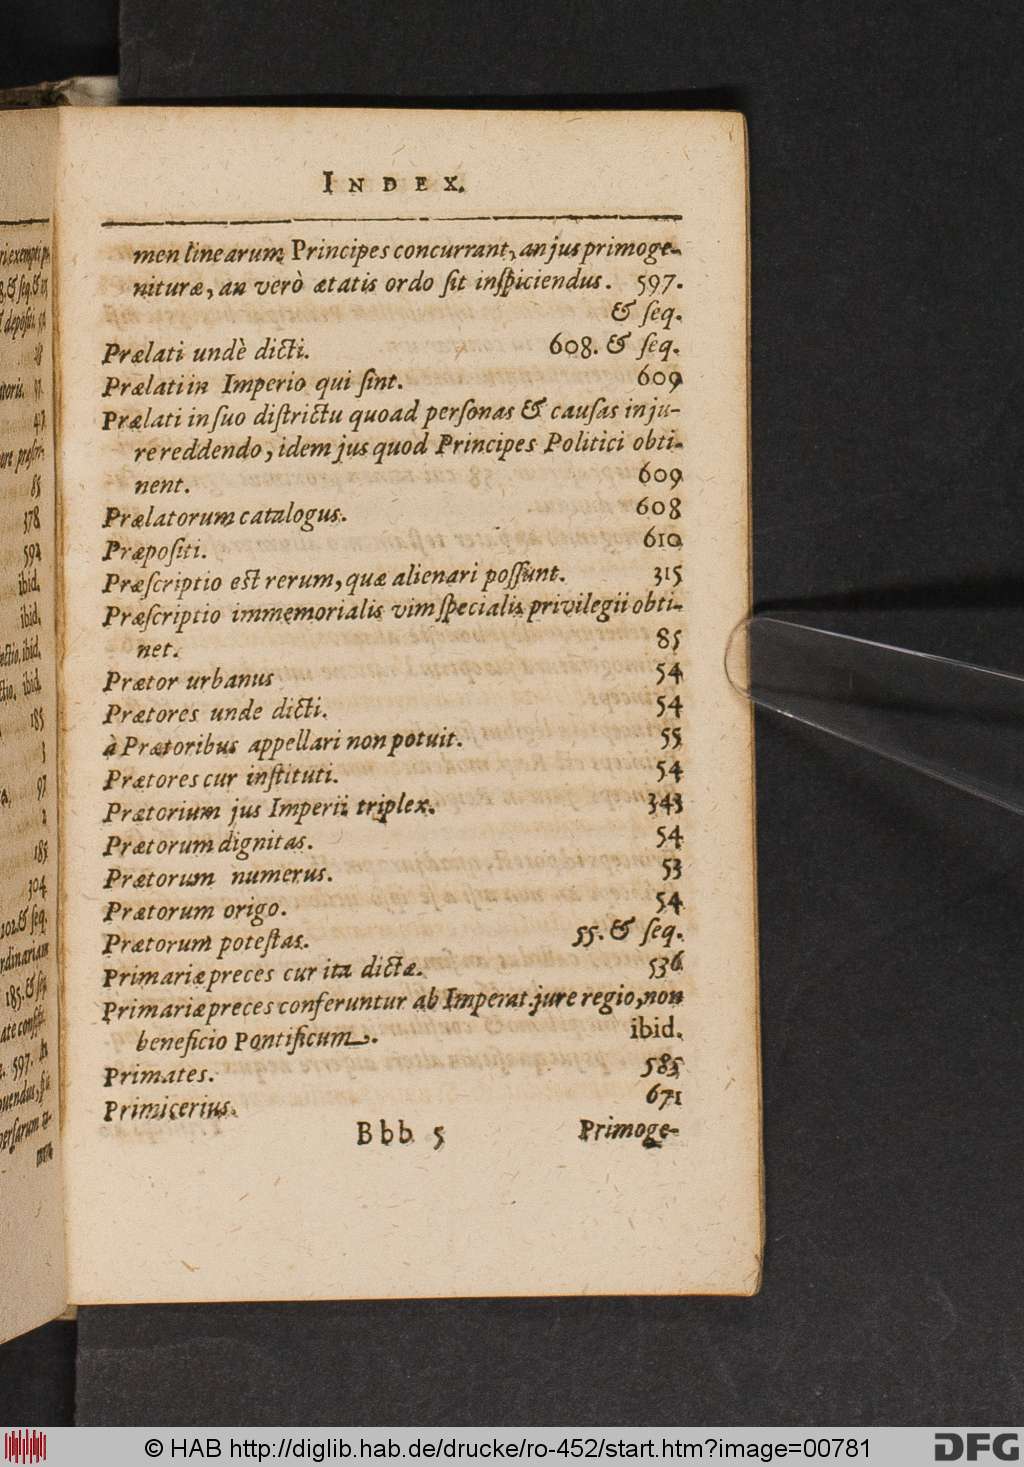 INDEX.
men linearum Principes concurrant, an jus primoge-
nituræ, an verò ætatis ordo ſit inſpiciendus. 597.
& ſeq.
Prælati undè dicti. 608. & ſeq.
Prælati in Imperio qui ſint. 609
Prælati in ſuo diſtrictu quoad perſonas & cauſas in ju-
re reddendo, idem jus quod Principes Politici obti-
nent. 609
Prælatorum catalogus. 608
Præpoſiti. 610
Præſcriptio est rerum, quæ alienari poſſunt. 315
Præſcriptio immemorialis vim ſpecialis privilegii obti-
net. 85
Prætor urbanus 54
Prætores unde dicti. 54
à Prætoribus appellari non potuit. 55
Prætores cur inſtituti. 54
Prætorium jus Imperii triplex. 343
Prætorum dignitas. 54
Prætorum numerus. 53
Prætorum origo. 54
Prætorum poteſtas. 55. & ſeq.
Primariæ preces cur ita dictæ. 536
Primariæ preces conferuntur ab Imperat. jure regio, non
beneficio Pontificum. ibid.
Primates. 585
Primicerius. 671
Bbb 5 Primoge-
378
592
ibid.
ibid.
ibid.
ibid.
185
3
97
2
185
304
202. & ſeq.
185. & ſeq.
597.
© HAB http://diglib.hab.de/drucke/ro-452/start.htm?image=00781
DFG